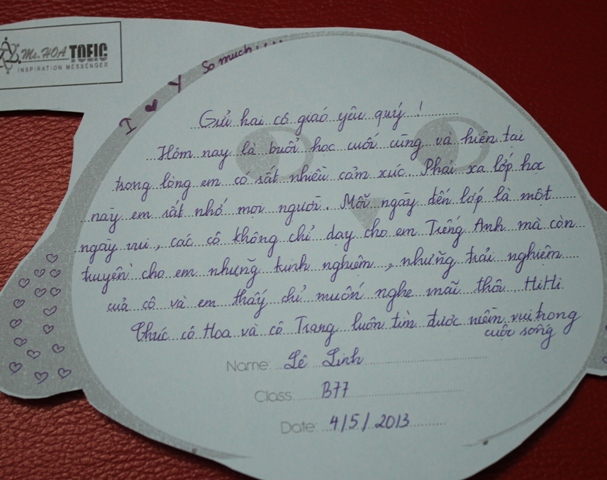 Ms. HOA TOEIC
INSPIRATION MESSENGER
I ♥ Y so much!!!!
Gửi hai cô giáo yêu quý !
Hôm nay là buổi học cuối cùng và hiện tại
trong lòng em có rất nhiều cảm xúc. Phải xa lớp học
này em rất nhớ mọi người. Mỗi ngày đến lớp là một
ngày vui, các cô không chỉ dạy cho em Tiếng Anh mà còn
truyền cho em những kinh nghiệm, những trải nghiệm
của cô và em thấy chỉ muốn nghe mãi thôi HiHi
Chúc cô Hoa và cô Trang luôn tìm được niềm vui trong
cuộc sống
Name: Lê Linh
Class: B77
Date: 4/5/2013